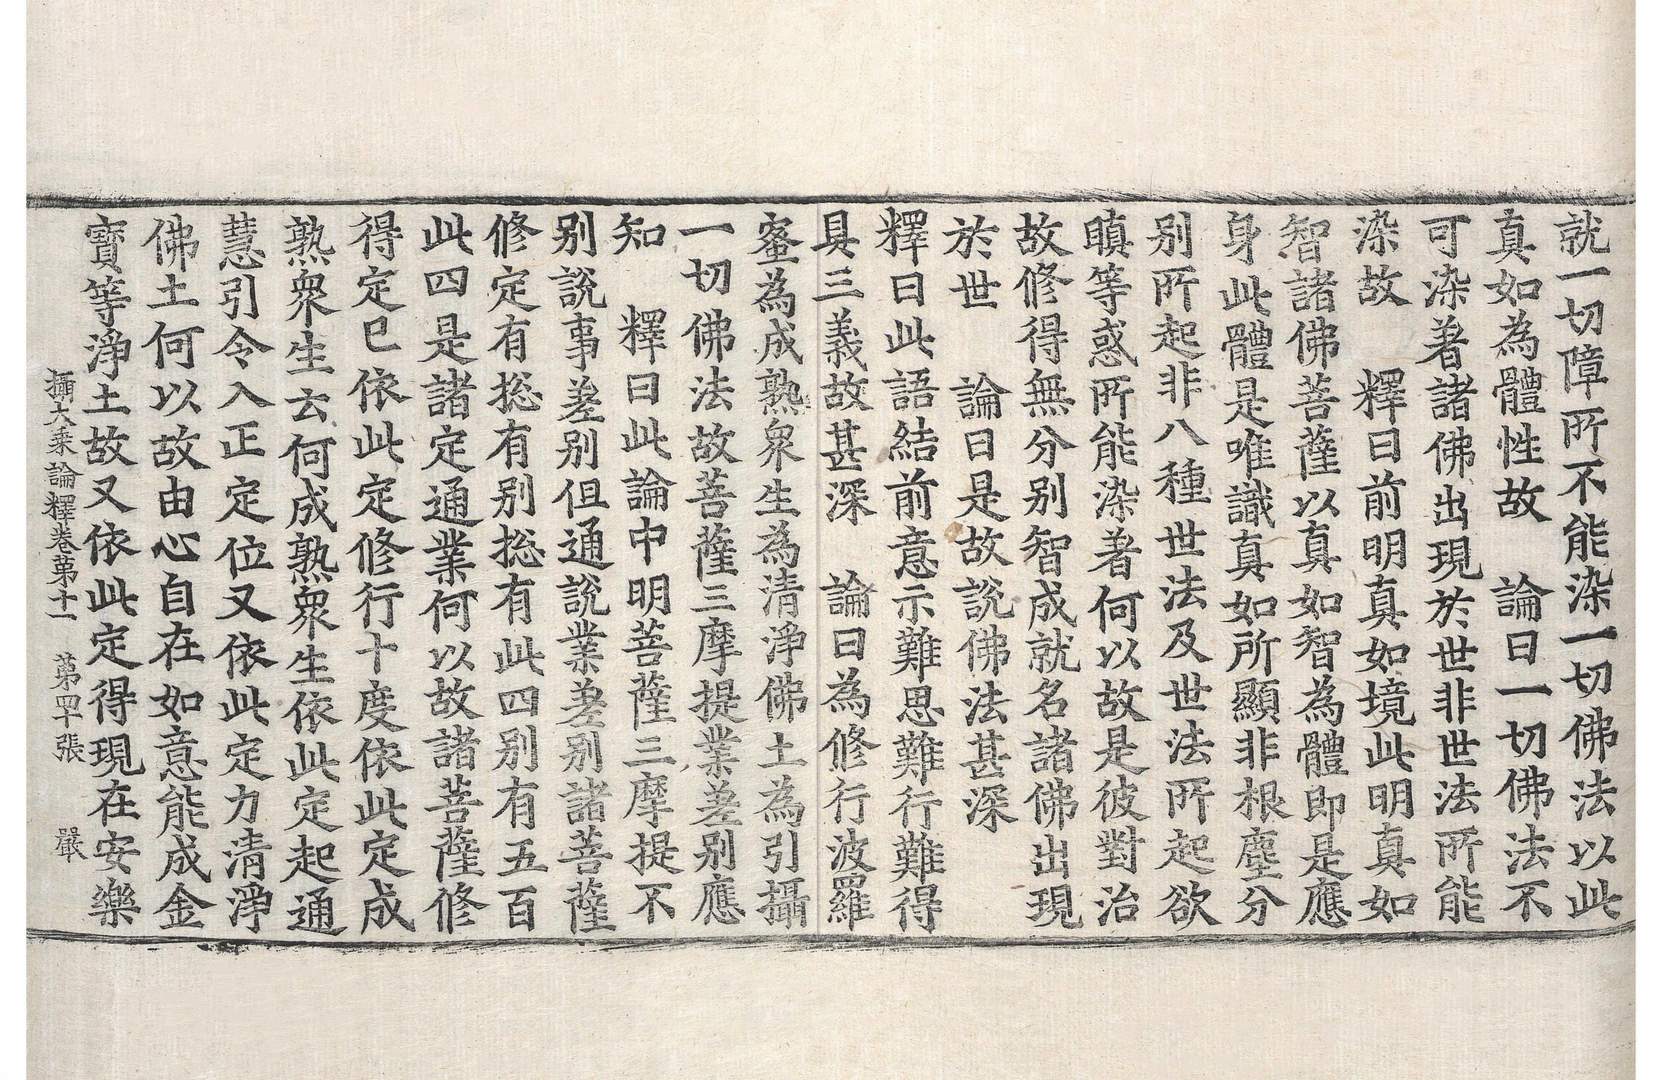 就一切障所不能染一切佛法以此
真如為體性故　論曰一切佛法不
可染著諸佛出現於世非世法所能
染故　釋曰前明真如境此明真如
智諸佛菩薩以真如智為體即是應
身此體是唯識真如所顯非根塵分
別所起非八種世法及世法所起欲
瞋等惑所能染著何以故是彼對治
故修得無分別智成就名諸佛出現
於世　論曰是故說佛法甚深
釋曰此語結前意示難思難行難得
具三義故甚深　論曰為修行波羅
蜜為成熟衆生為清淨佛土為引攝
一切佛法故菩薩三摩提業差別應
知　釋曰此論中明菩薩三摩提不
別說事差別但通說業差別諸菩薩
修定有揔有別揔有此四別有五百
此四是諸定通業何以故諸菩薩修
得定已依此定修行十度依此定成
熟衆生云何成熟衆生依此定起通
慧引令入正定位又依此定力清淨
佛土何以故由心自在如意能成金
寶等淨土故又依此定得現在安樂
攝大乘論釋卷第十一　第四十張　嚴